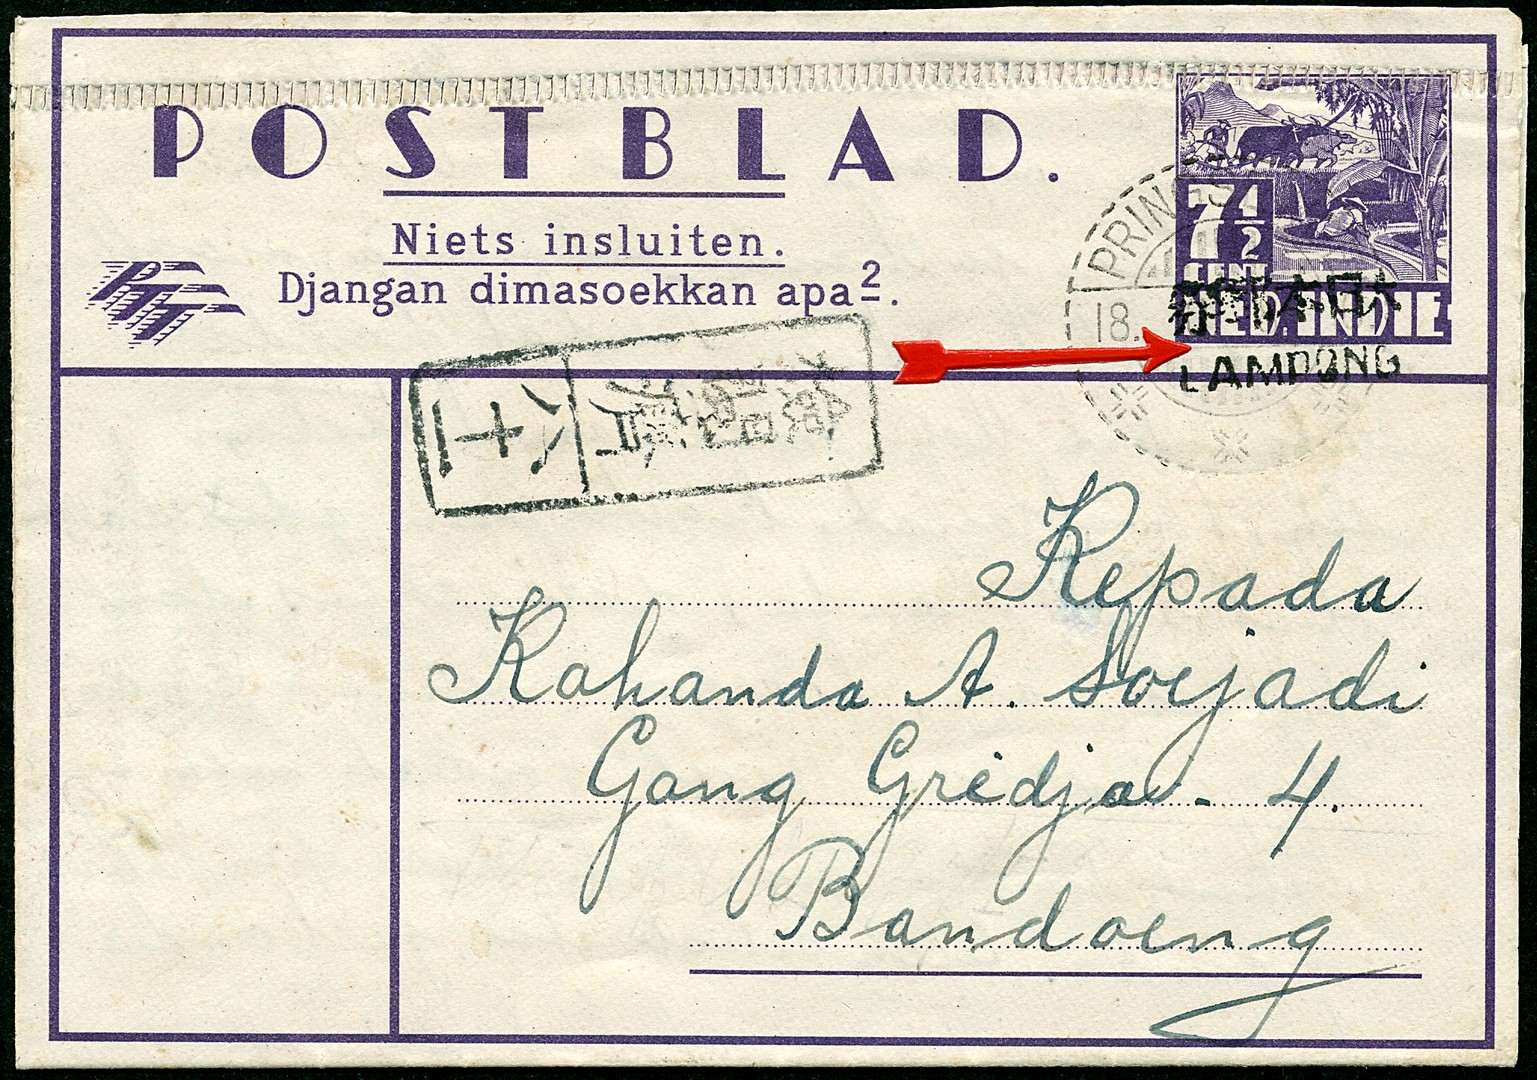 POSTBLAD.
Niets insluiten.
Djangan dimasoekkan apa².
PTT
7½
CENT
NED. INDIE
PRINGS
18.
LAMPONG
Kepada
Kahanda A. Soejadi
Gang Gredja - 4.
Bandoeng